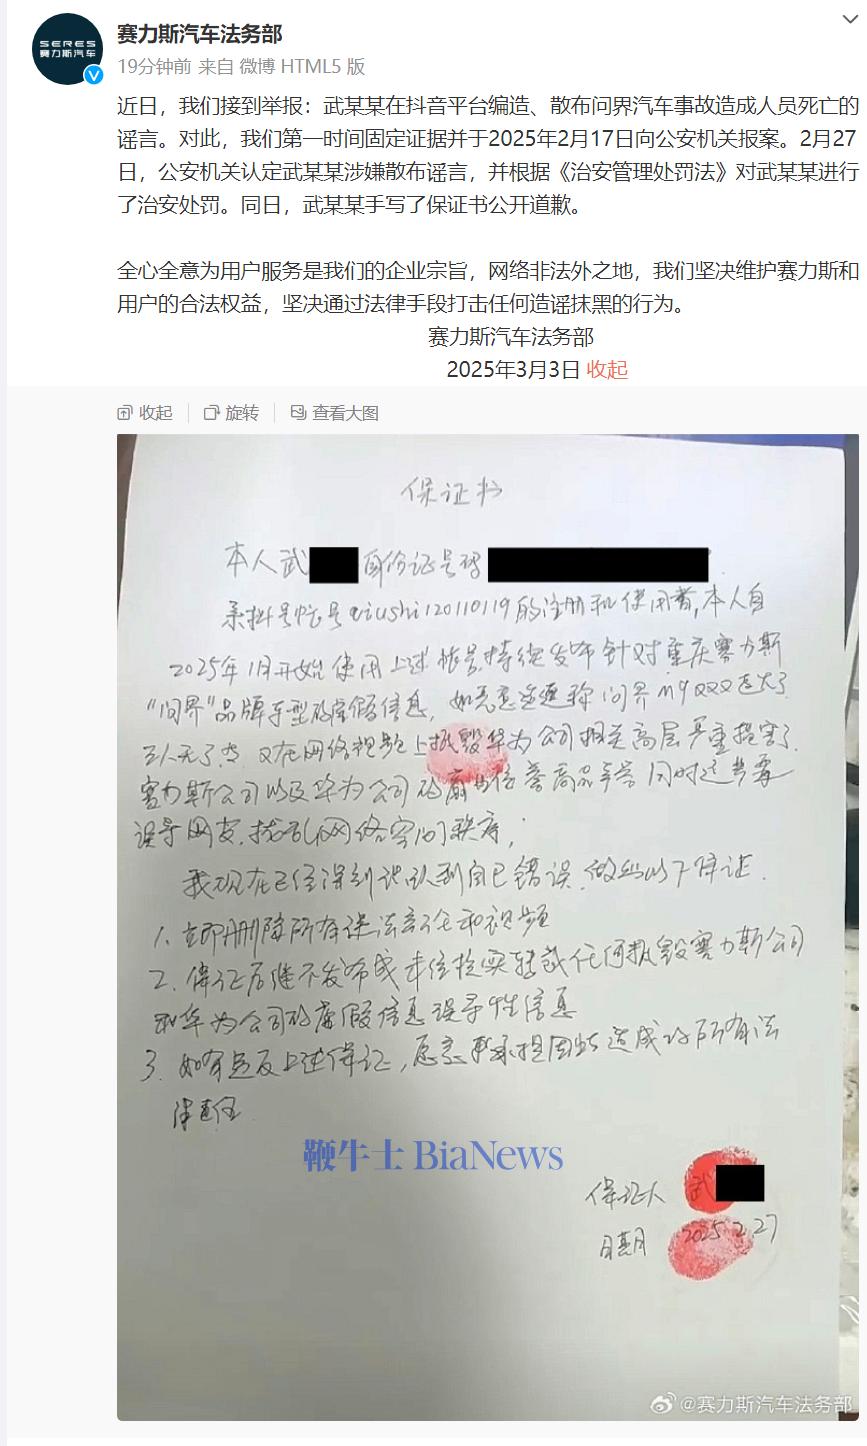 赛力斯汽车法务部
19分钟前 来自 微博 HTML5 版
SERES
赛力斯汽车
近日，我们接到举报：武某某在抖音平台编造、散布问界汽车事故造成人员死亡的
谣言。对此，我们第一时间固定证据并于2025年2月17日向公安机关报案。2月27
日，公安机关认定武某某涉嫌散布谣言，并根据《治安管理处罚法》对武某某进行
了治安处罚。同日，武某某手写了保证书公开道歉。
全心全意为用户服务是我们的企业宗旨，网络非法外之地，我们坚决维护赛力斯和
用户的合法权益，坚决通过法律手段打击任何造谣抹黑的行为。
赛力斯汽车法务部
2025年3月3日 收起
收起 旋转 查看大图
保证书
本人武 身份证号码
抖号帐号qiushi120110119的注册和使用者,本人自
2025年1月开始使用上述帐号持续发布针对重庆赛力斯
"问界"品牌车型的虚假信息, 如恶意造谣称问界m9
三人死亡 又在网络视频上诋毁华为公司相关高层严重损害了
赛力斯公司以及华为公司的 商品声誉 同时
误导网友,扰乱网络空间秩序;
我现在已经深刻认识到自己错误,做出以下保证.
1. 立即删除所有 和视频
2. 保证后续不发布或未经核实转载任何诋毁赛力斯公司
和华为公司的虚假信息误导性信息
3. 如有违反上述保证,愿意承担因此造成的所有法
律责任.
鞭牛士 BiaNews
保证人 武
日期 2025 2.27
@赛力斯汽车法务部